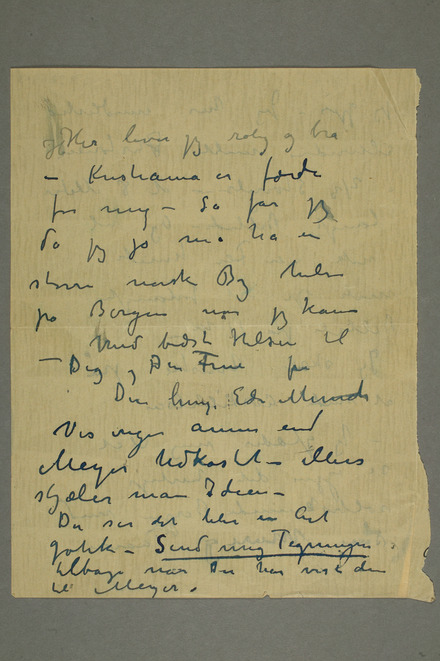 Her lever jeg rolig og bra
– Kristiania er færdi
for mig – Så får jeg
da jeg jo må ha en
større norsk By hilse
på Bergen når jeg kan
Med bedste Hilsen til
– Dig og Din Frue fra
Din heng. Edv Munch
Vis ingen annen end
Meyer Udkastet – ellers
stjæler man Ideen –
Du ser det blir en Art
gotik – Send mig Tegningen
tilbage når Du har vist den
til Meyer.